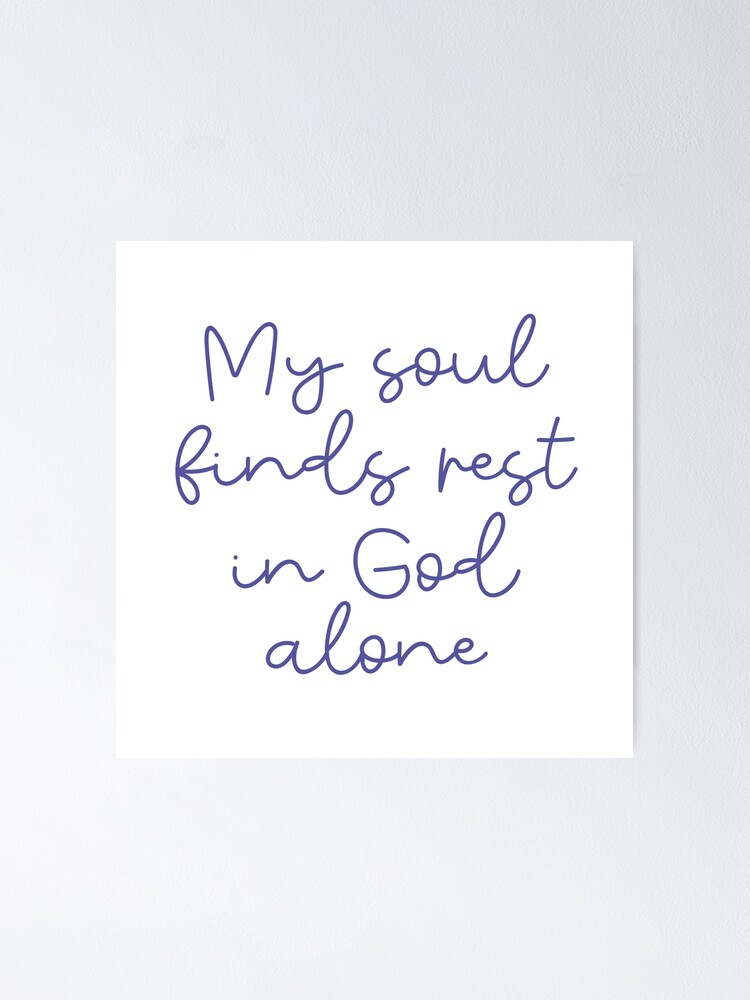 My soul
finds rest
in God
alone